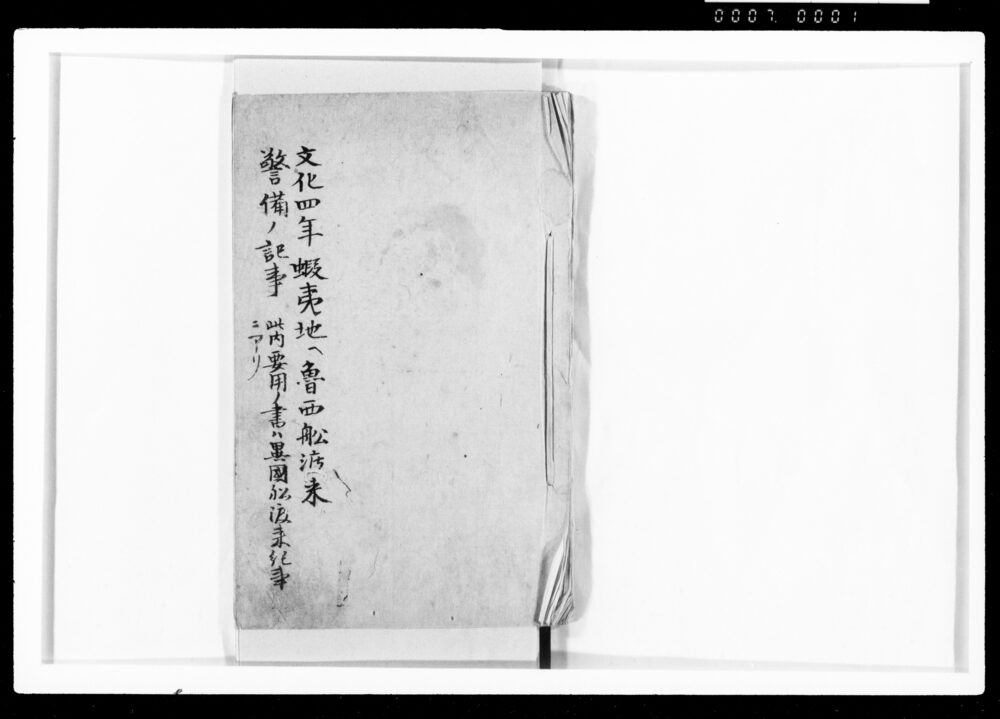 0007. 0001
文化四年蝦夷地ヘ魯西舩渡来
警備ノ記事
此内要用ノ書ハ異國舩渡来紀事
ニアリ